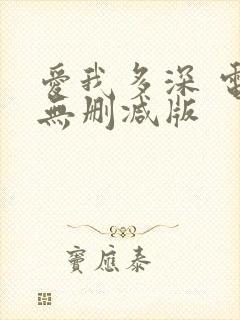 愛我多深 電
無刪減版
竇應泰